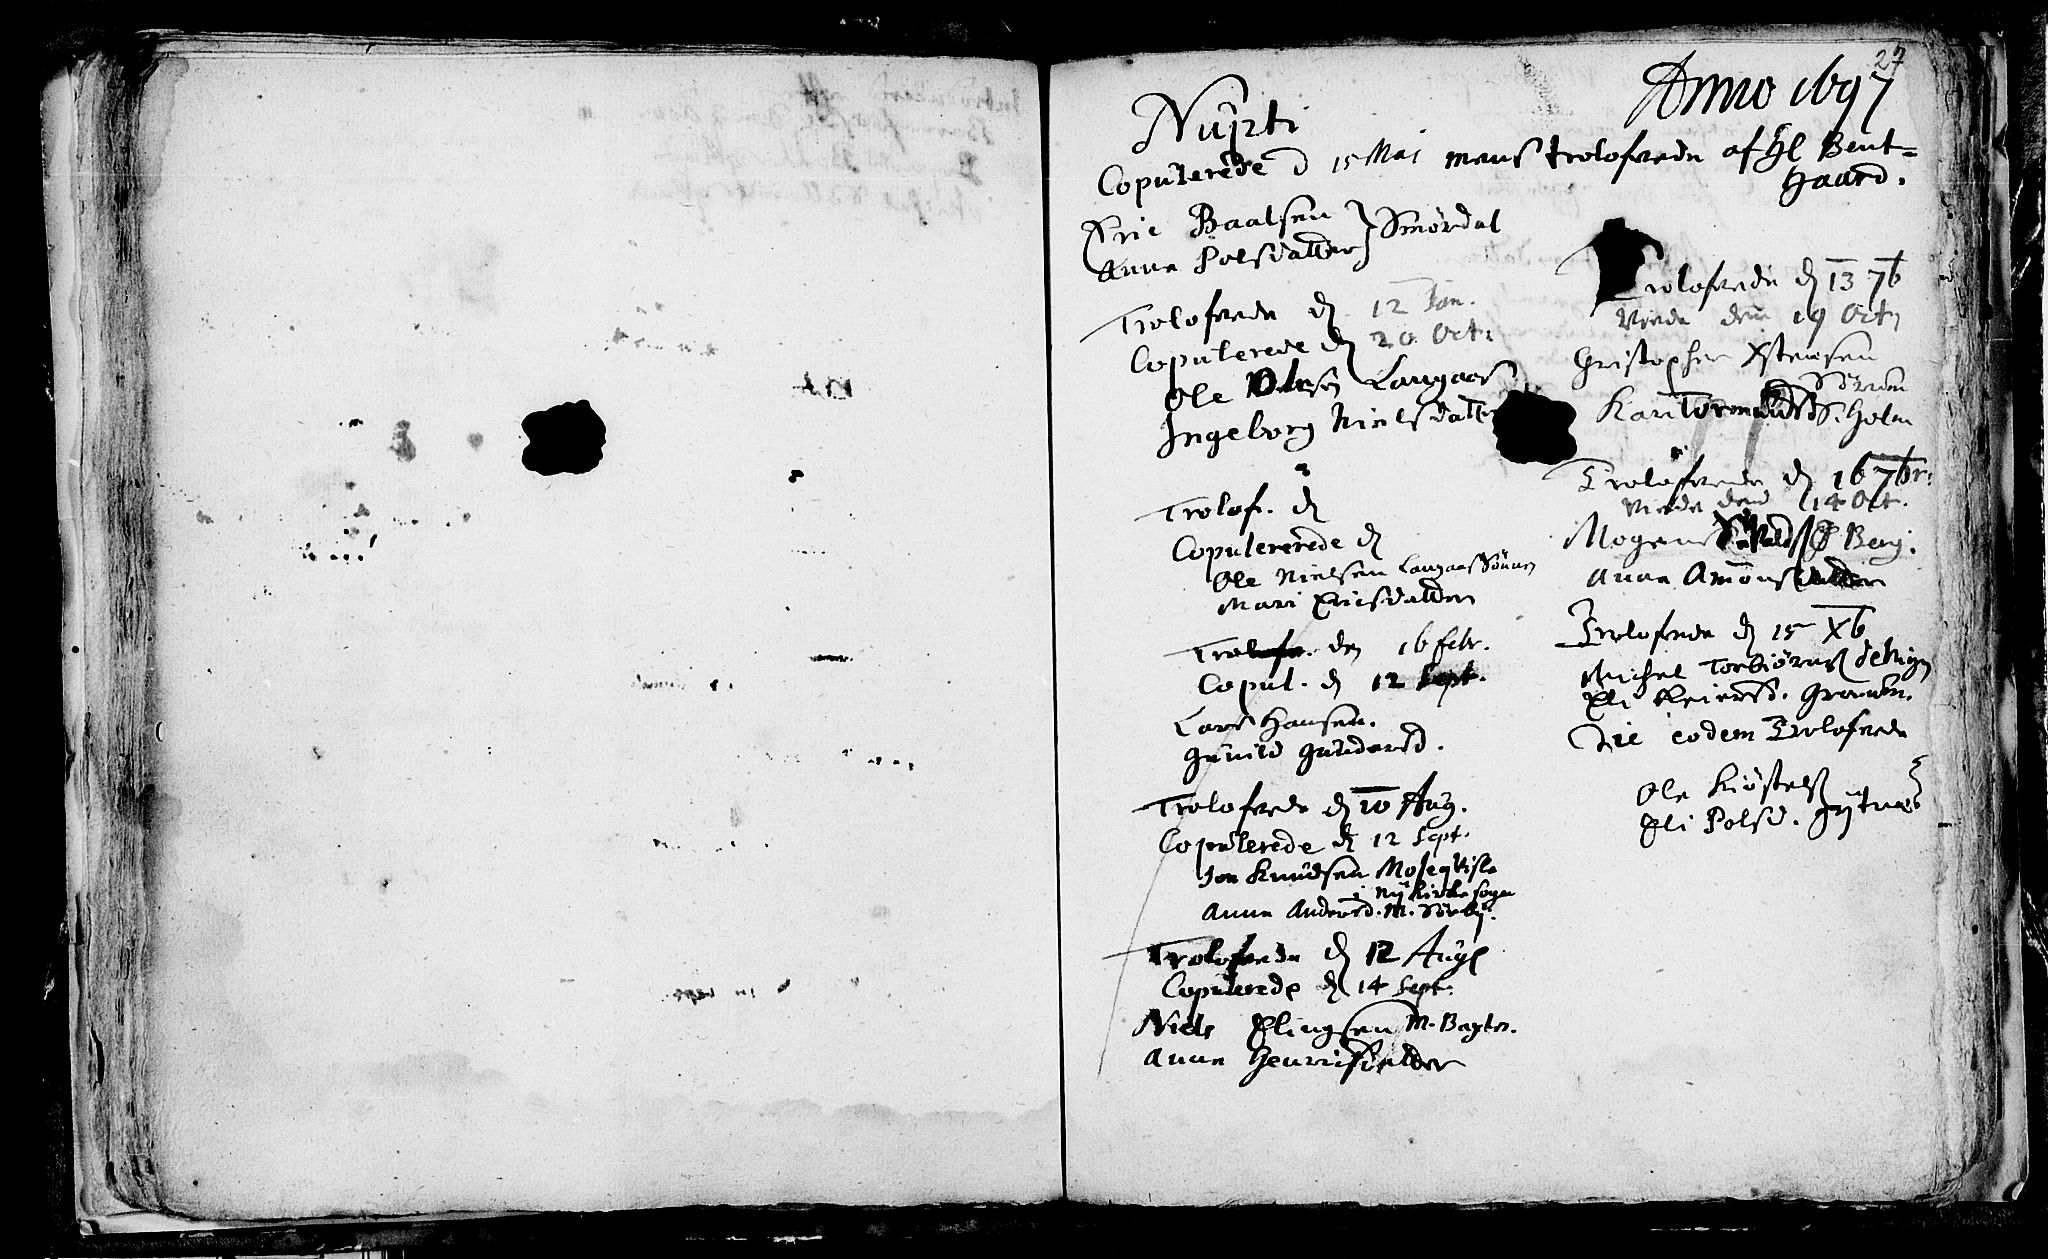 27
Anno 1697
Nupti
Copulerede d 15 Maj mens trolofvede af Hl Bent=
gaard.
Eric Baalsen
Anne Polsdatter } Smördal
Trolofvede dn 12 Jan.
Copulerede dn 20 Oct:
Ole Olesen Langaas
Ingeborg Nielsdatter
Trolof. dn
Copulererede dn
Ole Nielsen Langaas
Mari Ericsdatter
Trolofv. den 16 febr.
Copul. dn 12 Sept.
Lars Hansen.
Gunild Gundersd.
Trolofvede dn 10 Aug.
Copulerede dn 12 Sept.
Jon Knudsen Moseqvisle
i Nykirke sogn
Anne Andersd. M. Söeby.
Trolofvede dn 12 Aug
Copulerede dn 14 Sept.
Niels Elingsen M.
Anne Henricsdatter
Trolofvede dn 13 7b
Viede den 19 Octr
Christopher Xstensen
Sörum
Kari Tormundsd. S. Holm
Trolofvede dn 16 7br:
Viede dend 14 Oct.
Mogens Berg.
Anne Amonsdatter
Trolofvede dn 15 Xb
Michel Torbiörns
Eli Reiersd.
Die eodem Trolofvede
Ole Kiöstels
Eli Polsd.